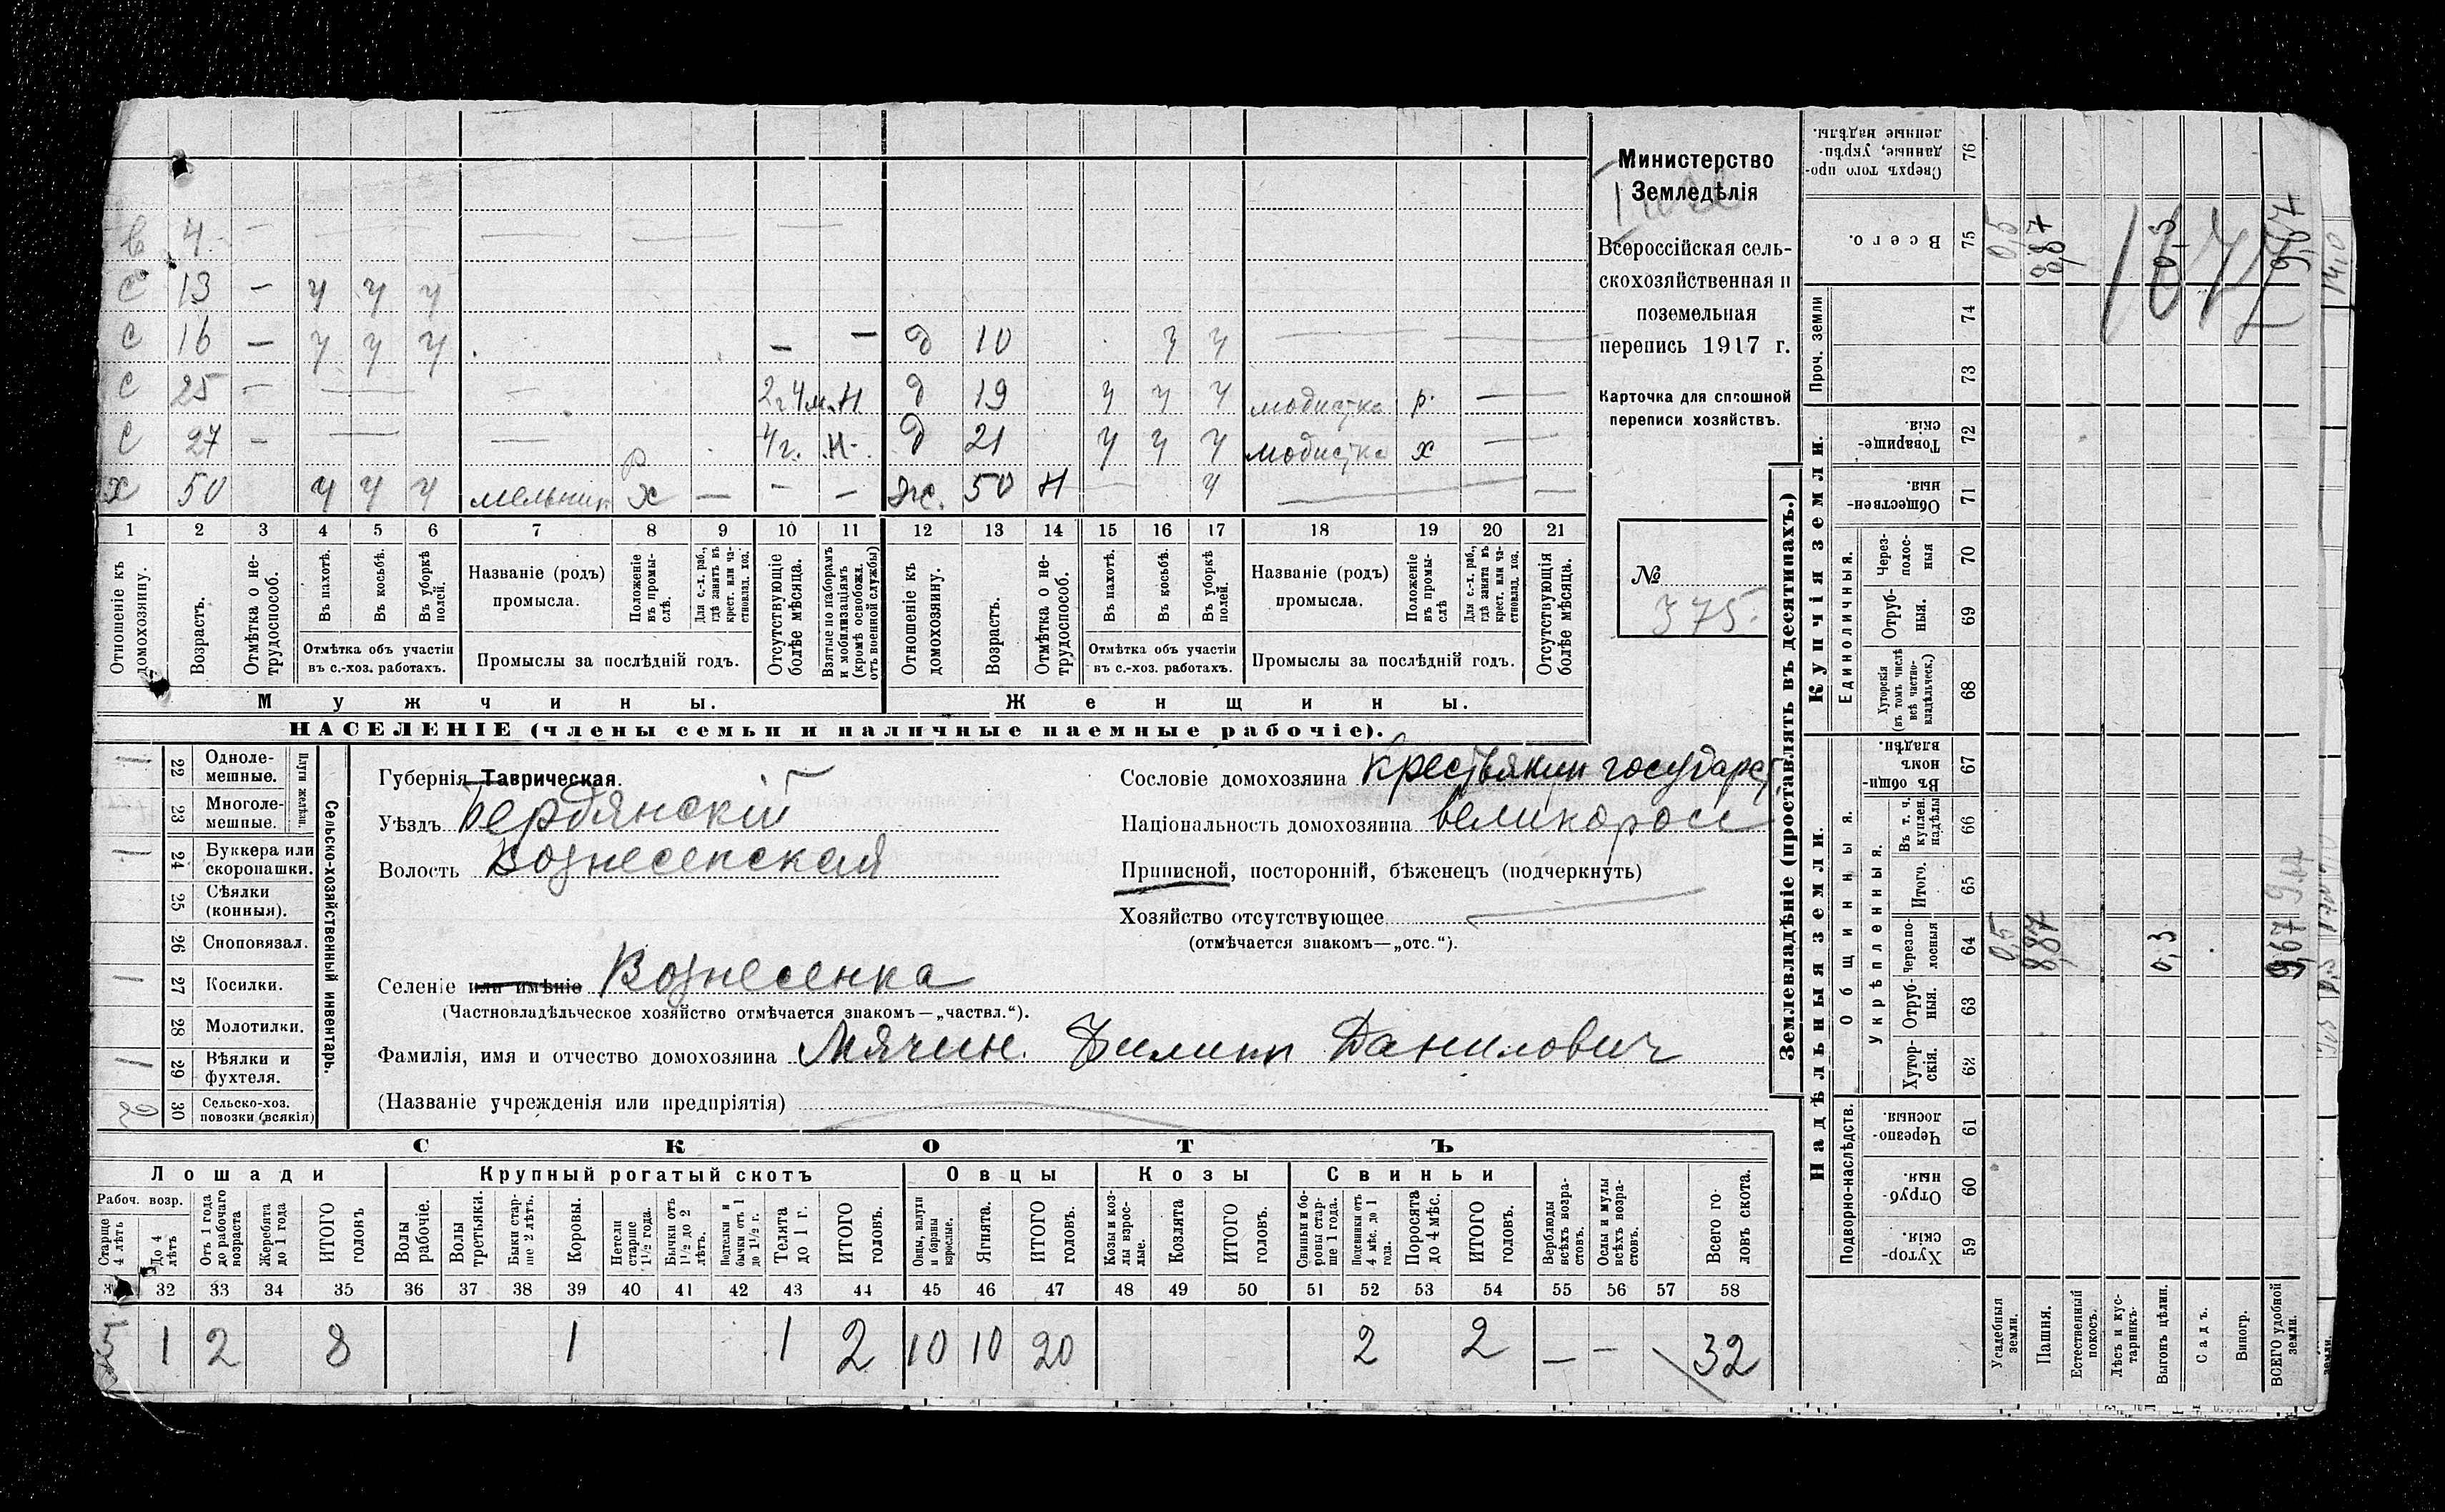 Министерство
Земледѣлія
Всероссійская сель-
скохозяйственная и
поземельная
перепись 1917 г.
Карточка для сплошной
переписи хозяйствъ.
№
375.
в 4 — — — — —
с 13 — ч ч ч
с 16 — ч ч ч — —
с 25 — — — 2г 4м. Н
с 27 — — — 4г. Н.
х 50 ч ч ч мельник х — — —
д 10 ч ч — —
д 19 ч ч ч модистка р. —
д 21 ч ч ч модистка х —
ж. 50 Н — ч — —
1 2 3 4 5 6 7 8 9 10 11 12 13 14 15 16 17 18 19 20 21
Отношеніе къ домохозяину.
Возрастъ.
Отмѣтка о не-трудоспособ.
Въ пахотѣ.
Въ косьбѣ.
Въ уборкѣ полей.
Отмѣтка объ участіи
въ с.-хоз. работахъ.
Названіе (родъ)
промысла.
Положеніе въ промы-слѣ.
Для с.-х. раб., гдѣ занятъ въ крест. или ча-стновлад. хоз.
Промыслы за послѣдній годъ.
Отсутствующіе болѣе мѣсяца.
Взятые по наборамъ и мобилизаціямъ (кромѣ освобожд. отъ военной службы)
Отношеніе къ домохозяину.
Возрастъ.
Отмѣтка о не-трудоспособ.
Въ пахотѣ.
Въ косьбѣ.
Въ уборкѣ полей.
Отмѣтка объ участіи
въ с.-хоз. работахъ.
Названіе (родъ)
промысла.
Положеніе въ промы-слѣ
Для с.-х. раб., гдѣ занята въ крест. или ча-стновлад. хоз.
Промыслы за послѣдній годъ.
Отсутствующія болѣе мѣсяца.
Мужчины.
Женщины.
НАСЕЛЕНІЕ (члены семьи и наличные наемные рабочіе).
22 Одноле-мешные. 1
23 Многоле-мешные.
Плуги желѣзн.
24 Буккера или скоропашки. 1
25 Сѣялки (конныя).
26 Сноповязал.
27 Косилки. 1
28 Молотилки.
29 Вѣялки и фухтеля. 1
30 Сельско-хоз. повозки (всякія) 2
Сельско-хозяйственный инвентарь.
Губернія Таврическая.
Уѣздъ Бердянскій
Волость Вознесенская
Селеніе или имѣніе Вознесенка
(Частновладѣльческое хозяйство отмѣчается знакомъ—„частвл.“).
Фамилія, имя и отчество домохозяина Мячин. Филипп Данилович
(Названіе учрежденія или предпріятія)
Сословіе домохозяина Крестьянин государст
Національность домохозяина великоросс
Приписной, посторонній, бѣженецъ (подчеркнуть)
Хозяйство отсутствующее
(отмѣчается знакомъ—„отс.“).
СКОТЪ
Лошади
Крупный рогатый скотъ
Овцы
Козы
Свиньи
Рабоч. возр.
Старше 4 лѣтъ
До 4 лѣтъ
Отъ 1 года до рабочаго возраста
Жеребята до 1 года
ИТОГО головъ
Волы рабочіе.
Волы третьяки.
Быки стар-ше 2 лѣтъ.
Коровы.
Нетели старше 1½ года.
Бычки отъ 1½ до 2 лѣтъ.
Подтелки и бычки отъ 1 до 1½ г.
Телята до 1 г.
ИТОГО головъ.
Овцы, валухи и бараны взрослые.
Ягнята.
ИТОГО головъ.
Козы и коз-лы взрос-лые.
Козлята
ИТОГО головъ.
Свиньи и бо-ровы стар-ше 1 года.
Подсвинки отъ 4 мѣс. до 1 года.
Поросята до 4 мѣс.
ИТОГО головъ.
Верблюды всѣхъ возра-стовъ.
Ослы и мулы всѣхъ возра-стовъ.
Всего го-ловъ скота.
32 33 34 35 36 37 38 39 40 41 42 43 44 45 46 47 48 49 50 51 52 53 54 55 56 57 58
5 1 2 8 1 1 2 10 10 20 2 2 — — 32
Землевладѣніе (проставлять въ десятинахъ.)
Надѣльныя земли.
Купчія земли.
Проч. земли
Подворно-наслѣдств.
Общинныя.
Укрѣпленныя.
Единоличныя.
Хутор-скія. 59
Отруб-ныя. 60
Черезпо-лосныя. 61
Хутор-скія. 62
Отруб-ныя. 63
Черезпо-лосныя 64
Итого. 65
Въ т. ч. куплен. надѣлы 66
Въ общи-номъ владѣн. 67
Хуторскія (въ томъ числѣ всѣ частно-владѣльческ.) 68
Отруб-ныя. 69
Через-полос-ныя 70
Обществен-ныя. 71
Товарище-скія. 72
73
74
Всего. 75
Сверхъ того про-данные, укрѣп-ленные надѣлы. 76
Усадебныя земли. 0,5 0,5
Пашня. 8,87 8,87
Естественный покосъ.
Лѣсъ и кус-тарникъ.
Выгонъ цѣлин. 0,3 0,3
Садъ.
Виногр.
ВСЕГО удобной земли. 9,67 9,67
14,0